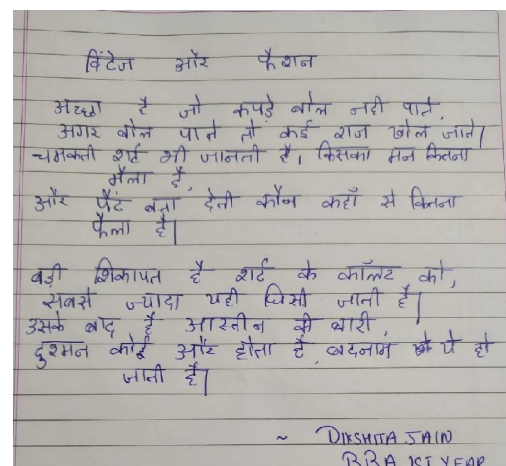 विंटेज और फैशन
अच्छा है जो कपड़े बोल नही पाते,
अगर बोल पाते तो कई राज खोल जाते|
चमकती शर्ट भी जानती है, किसका मन कितना
मैला है,
और पैंट बता देती कौन कहाँ से कितना
फैला है|
बड़ी शिकायत है शर्ट के कॉलर को,
सबसे ज्यादा यही घिसी जाती है|
उसके बाद है आस्तीन की बारी,
दुश्मन कोई और होता है, बदनाम ये हो
जाती है|
~ DIKSHITA JAIN
BBA IST YEAR